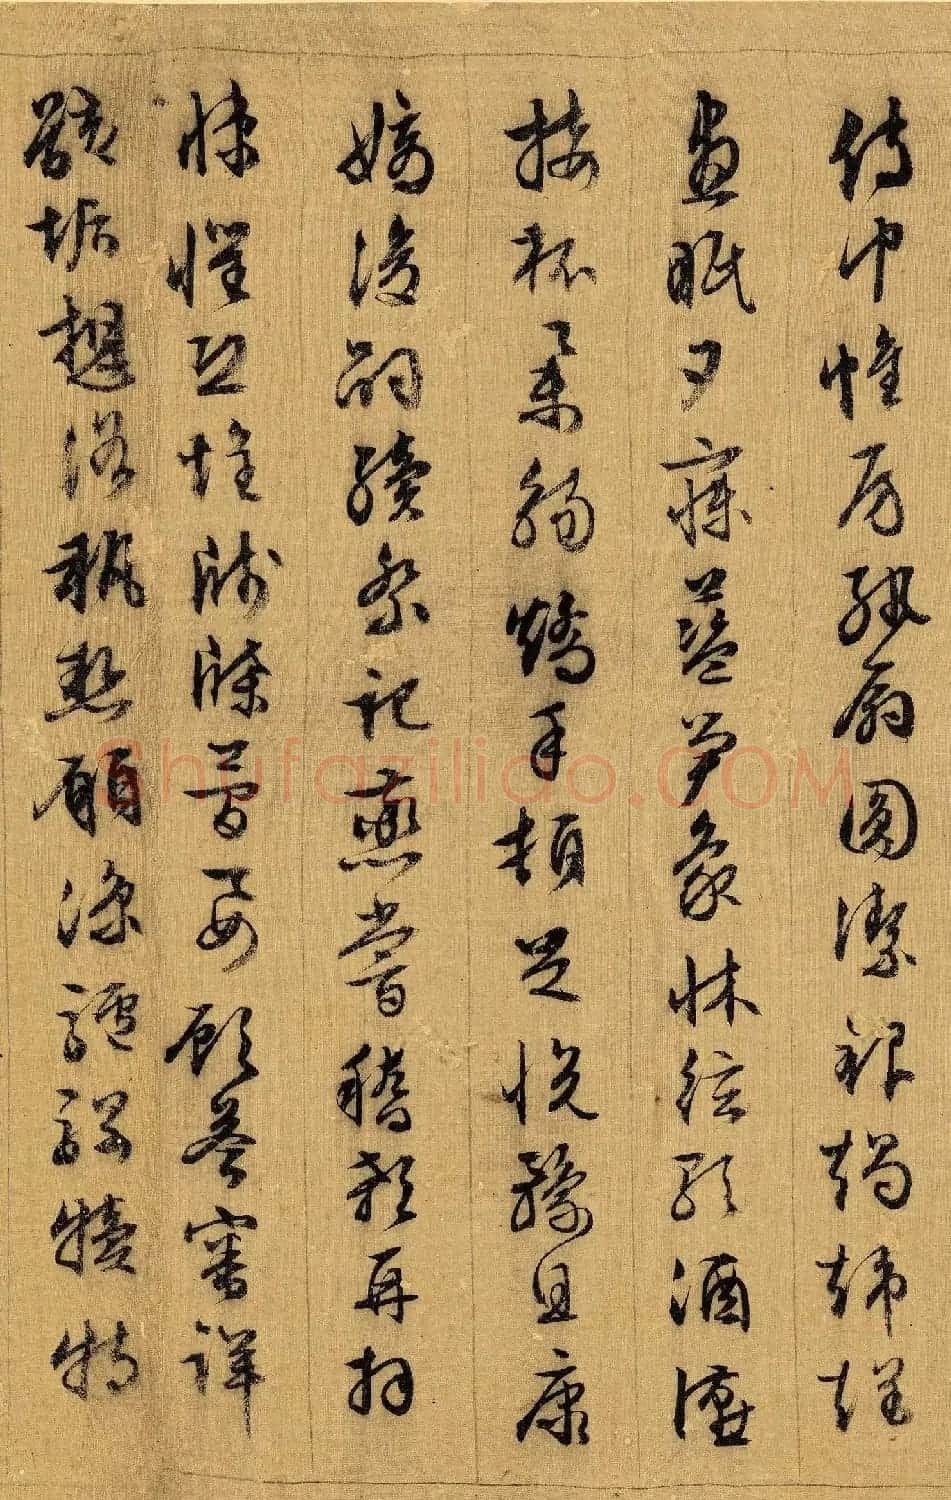 侍巾帷房紈扇圓潔銀燭煒煌
晝眠夕寐藍筍象床絃歌酒讌
接杯舉觴矯手頓足悅豫且康
嫡後嗣續祭祀蒸嘗稽顙再拜
悚懼恐惶牋牒簡要顧答審詳
骸垢想浴執熱願涼驢騾犢特
Shufaziliao.COM